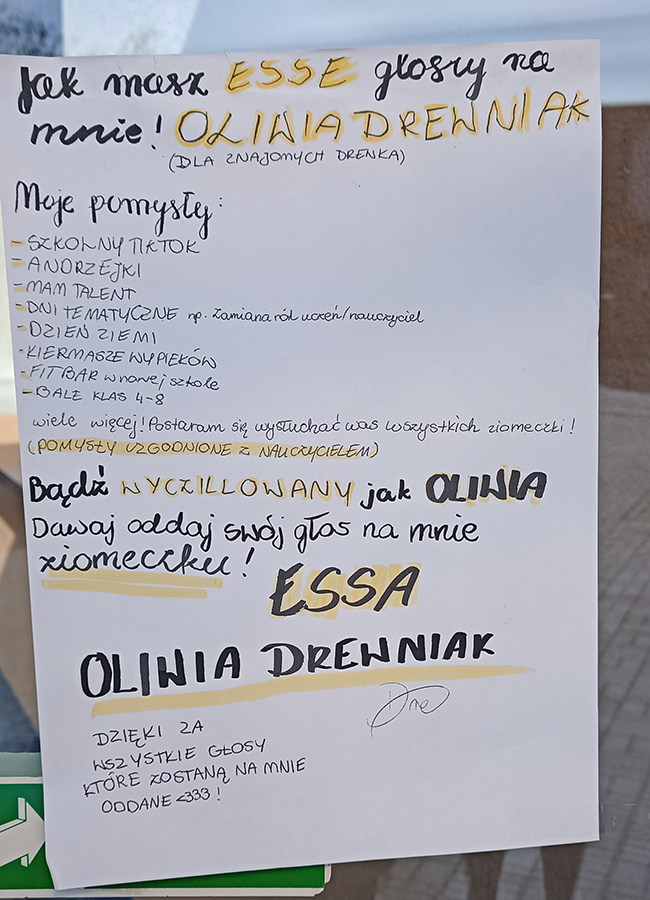 Jak masz ESSE głosuj na
mnie! OLIWIA DREWNIAK
(DLA ZNAJOMYCH DRENKA)
Moje pomysły:
- SZKOLNY TIKTOK
- ANDRZEJKI
- MAM TALENT
- DNI TEMATYCZNE np. zamiana ról uczeń/nauczyciel
- DZIEŃ ZIEMI
- KIERMASZE WYPIEKÓW
- FITBAR w nowej szkole
- BALE KLAS 4-8
wiele więcej! Postaram się wysłuchać was wszystkich ziomeczki!
(POMYSŁY UZGODNIONE Z NAUCZYCIELEM)
Bądź WYCZILLOWANY jak OLIWIA
Dawaj oddaj swój głos na mnie
ziomeczku!
ESSA
OLIWIA DREWNIAK
DZIĘKI ZA
WSZYSTKIE GŁOSY
KTÓRE ZOSTANĄ NA MNIE
ODDANE <333!